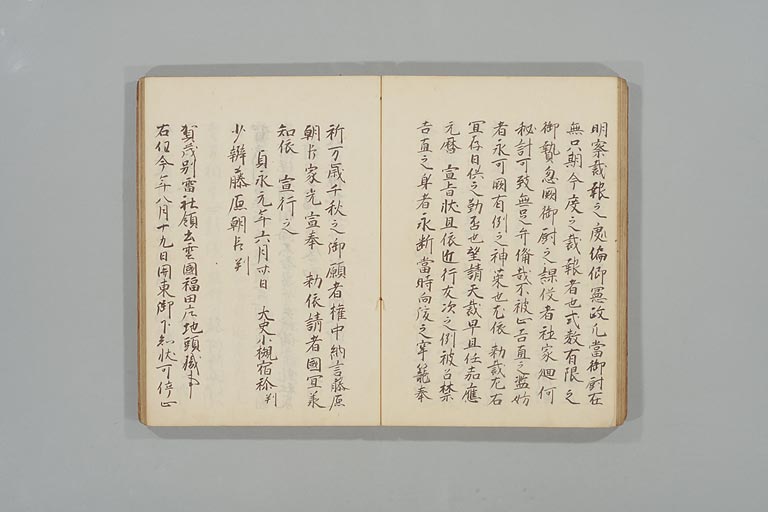 明察裁報之處偏仰憲政凡當御厨在
無只期今度之裁報者也式数有限之
御贄忽闕御厨之課役者社家廻何
秘計可致無足弁備哉不被止吉直之濫妨
者永可闕有例之神菜也尤依 勅裁尤石
冝存日供之勤否也望請天裁早且任嘉應
元暦 宣旨状且依近行友次之例被召禁
吉直之身者永断當時向後之牢籠奉
祈万歳千秋之御願者權中納言藤原
朝臣家光宣奉 勅依請者國冝承
知依 宣行之
貞永元年六月廿日 大史小槻宿祢判
少辨藤原朝臣判
賀茂別雷社領出雲國福田庄地頭職事
右任今年八月十九日関東御下知状可停止